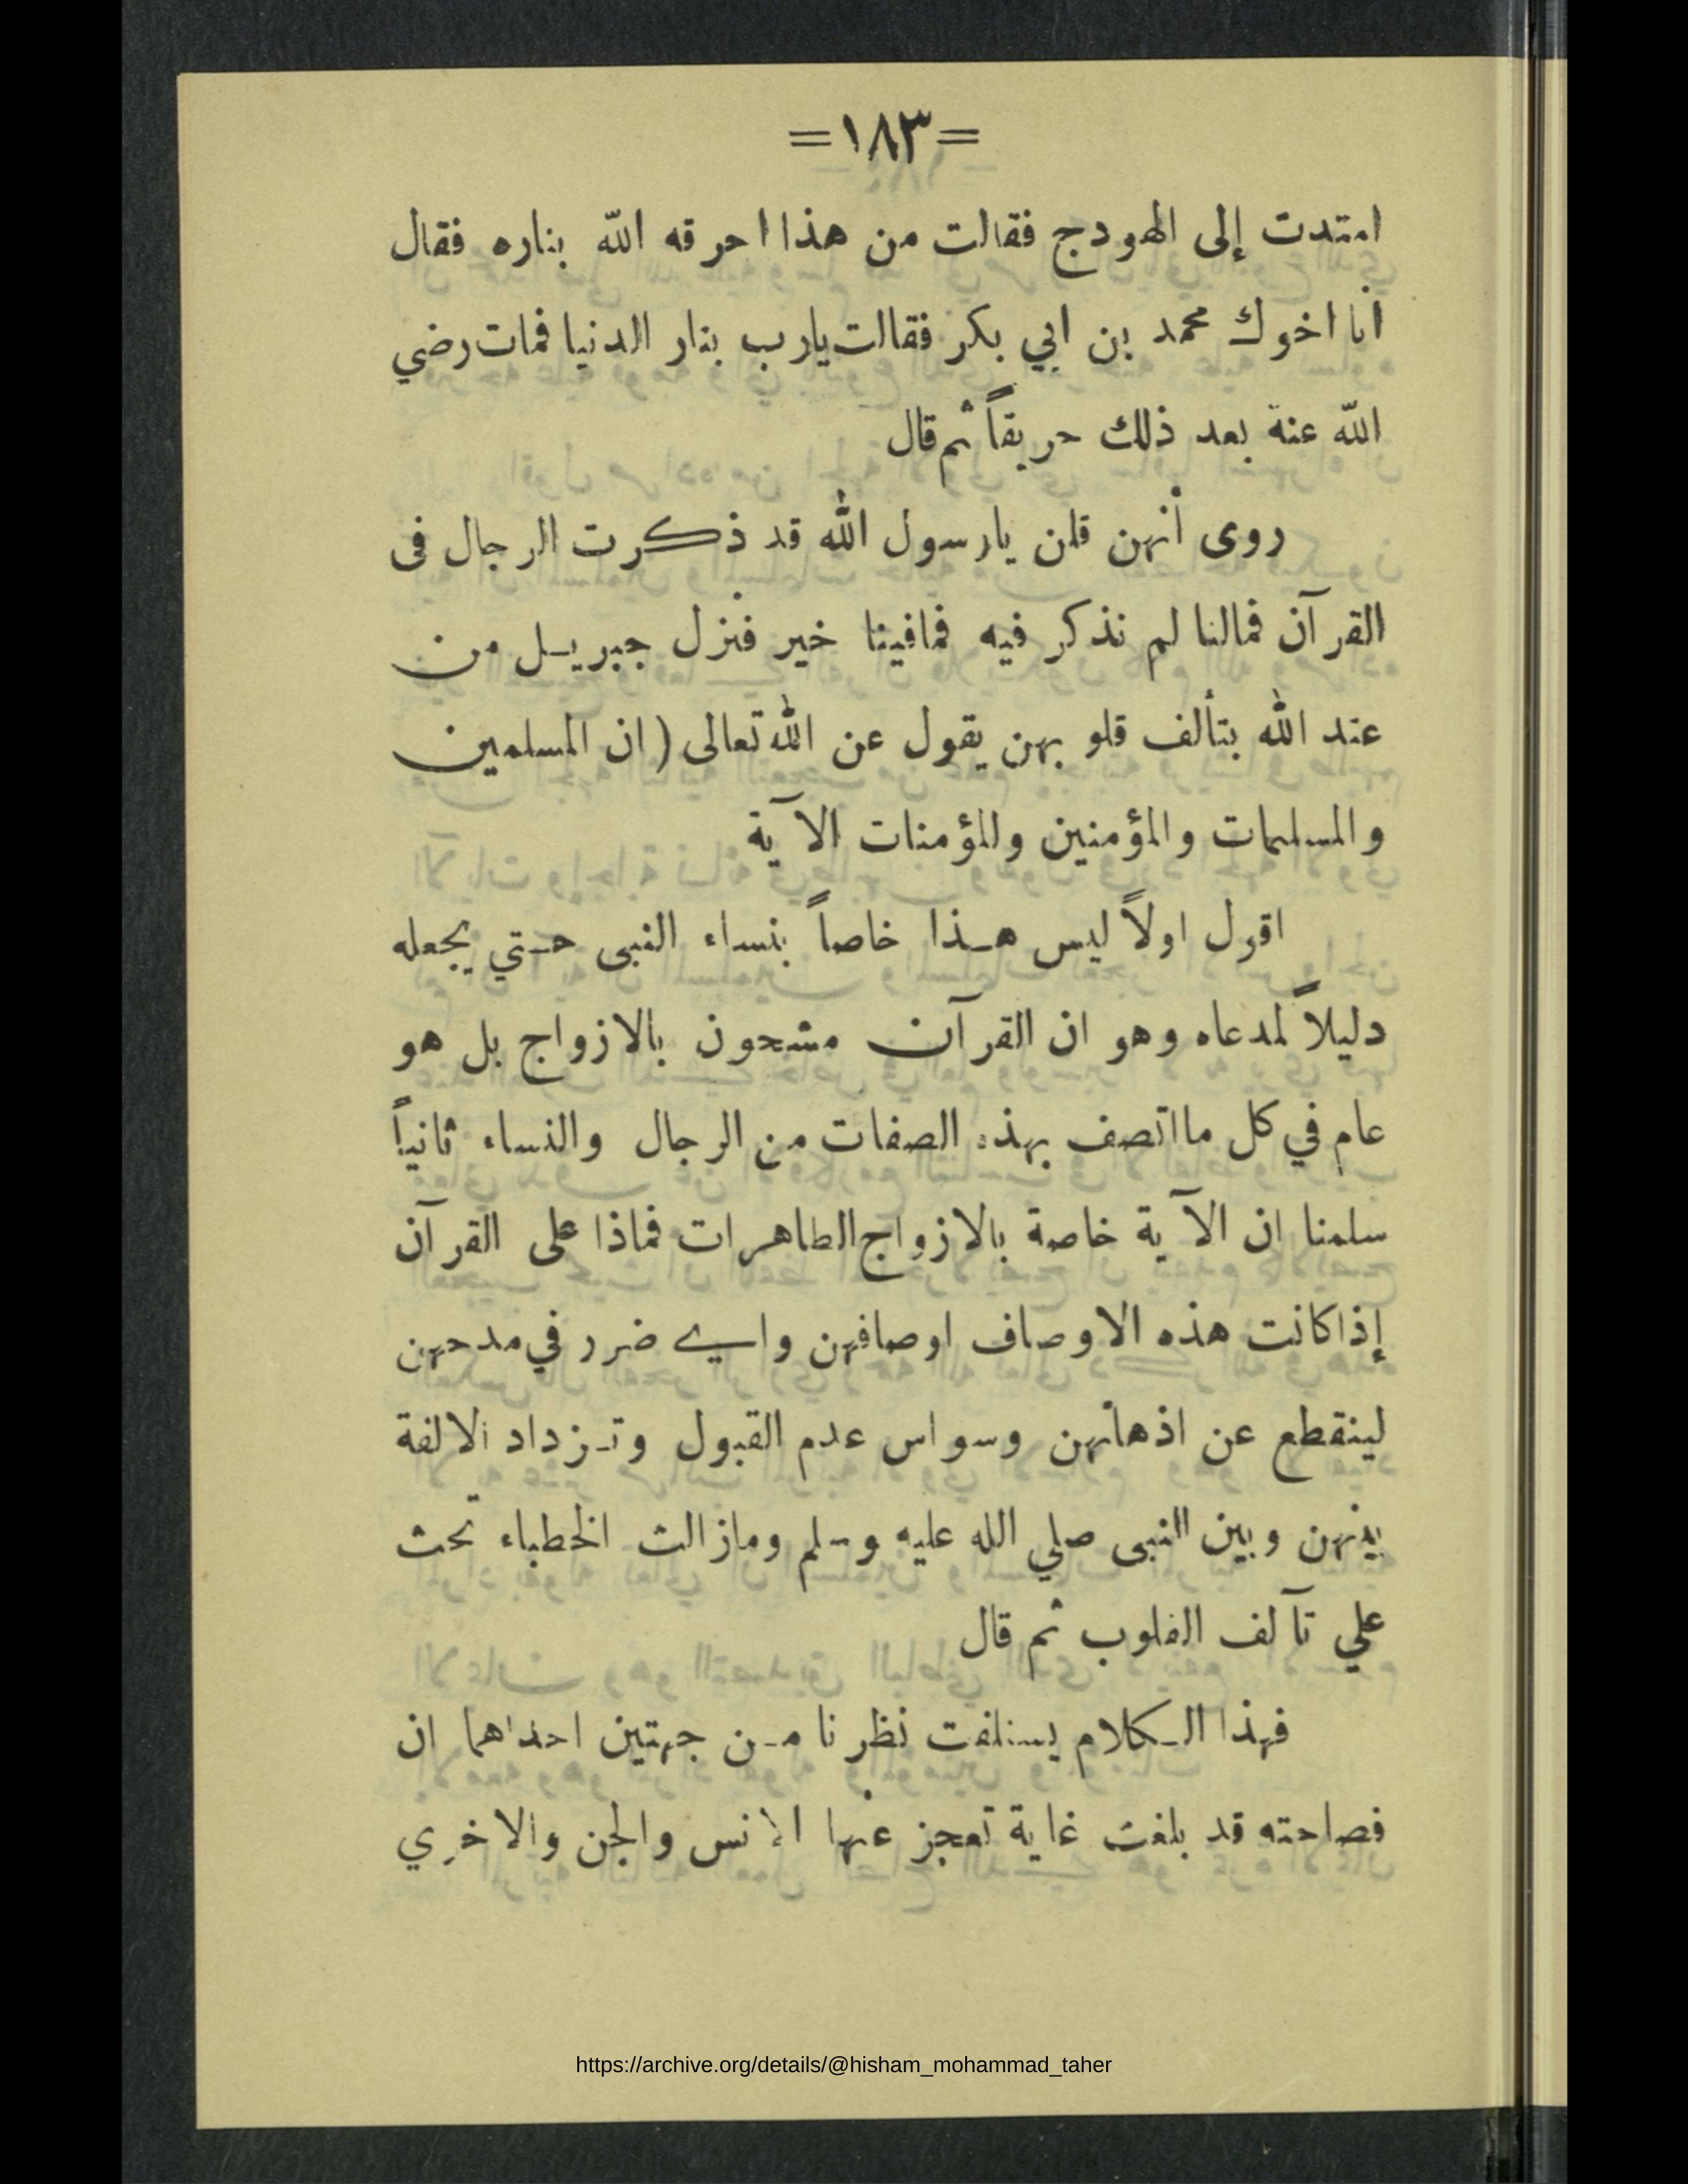 =١٨٣=
امتدت إلى الهودج فقالت من هذا احرقه الله بناره فقال
أنا اخوك محمد بن ابي بكر فقالت يارب بنار الدنيا فمات رضي
الله عنة بعد ذلك حريقاً ثم قال
روى أنهن قلن يارسول الله قد ذكرت الرجال فى
القرآن فمالنا لم نذكر فيه فمافينا خير فنزل جبريل من
عند الله بتألف قلوبهن يقول عن الله تعالى (ان المسلمين
والمسلمات والمؤمنين والمؤمنات الآية
اقول اولاً ليس هذا خاصاً بنساء النبى حتي يجعله
دليلاً لمدعاه وهو ان القرآن مشحون بالازواج بل هو
عام في كل مااتصف بهذه الصفات من الرجال والنساء ثانياً
سلمنا ان الآية خاصة بالازواج الطاهرات فماذا على القرآن
إذا كانت هذه الاوصاف اوصافهن واي ضرر في مدحهن
لينقطع عن اذهانهن وسواس عدم القبول وتزداد الالفة
بينهن وبين النبى صلي الله عليه وسلم ومازالت الخطباء تحث
علي تآلف القلوب ثم قال
فهذا الكلام يستلفت نظرنا من جهتين احداهما ان
فصاحته قد بلغت غاية تعجز عنها الانس والجن والاخري
https://archive.org/details/@hisham_mohammad_taher